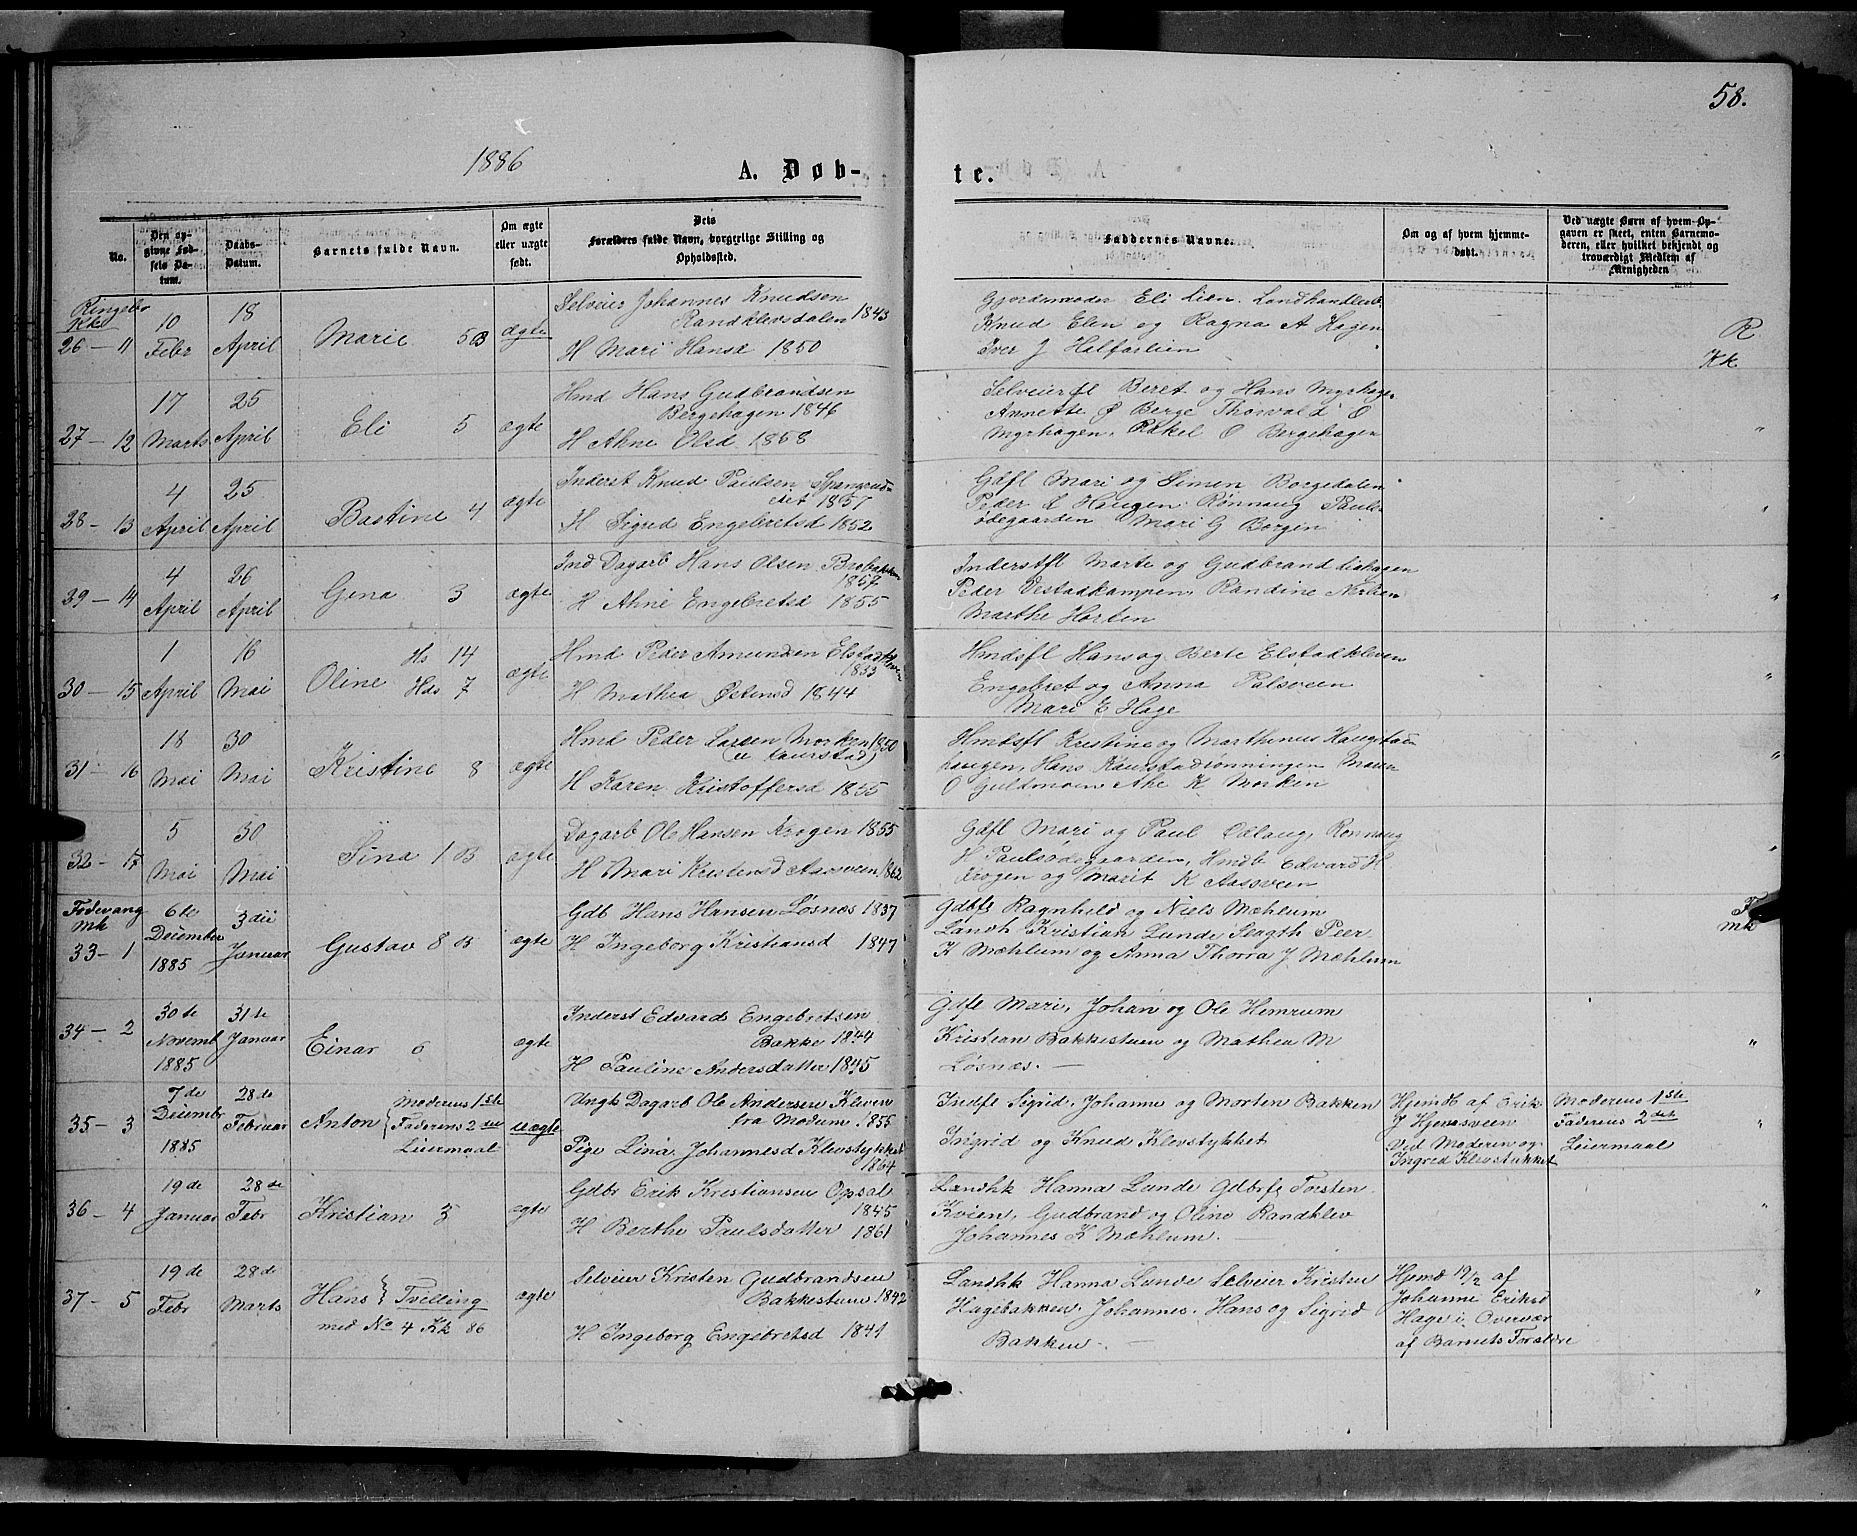 58.
1886
A. Døb-
te.
No.
Den opgivne Fødsels Datum.
Daabs-Datum.
Barnets fulde Navn.
Om ægte eller uægte født.
Dets Forældres fulde Navn, borgerlige Stilling og Opholdssted.
Faddernes Navne.
Om og af hvem hjemmedøbt.
Ved uægte Børn af hvem Opgaven er skeet, enten Barnemoderen, eller hvilket bekjendt og troværdigt Medlem af Menigheden
Ringebo Kk
26 - 11
10 Febr
18 April
Marie 5 B
ægte
Selveier Johannes Knudsen
Randklevsdalen 1843
H Mari Hansd 1850
Gjordemoder Eli Lien. Landhandler
Knud Elen og Ragna A Hagen
Iver J Halfarlien
R
Kk
27 - 12
17 Marts
25 April
Eli 5
ægte
Hmd Hans Gudbrandsen
Bergehagen 1846
H Ahne Olsd 1858
Selveierfl Beret og Hans Myrhagen
Annette Ø Berge Thorvald O
Myrhagen, Rakel O Bergehagen
"
28 - 13
4 April
25 April
Bastine 4
ægte
Inderst Knud Paulsen
1857
H Sigrid Engebretsd 1852
Gdfl Mari og Simen Borgedalen
Peder L Haugen Rønnaug Pauls-
ødegaarden Mari G Borgen
"
29 - 14
4 April
26 April
Gina 3
ægte
Ind Dagarb Hans Olsen Brobakken
1857
H Ahne Engebretsd 1855
Inderstfl Marte og Gudbrand Liehagen
Peder Vestadkampen, Randine
Marthe Horten
"
30 - 15
1 April
16 Mai
Oline Hs 14
Hds 7
ægte
Hmd Peder Amundsen Elstadkleven
1833
H Mathea Østensd 1844
Hmdsfl Hans og Berte Elstadkleven
Engebret og Anna Pålsveen
Mari E Hage
"
31 - 16
18 Mai
30 Mai
Kristine 8
ægte
Hmd Peder Larsen Morken 1850
H Karen Kristoffersd 1855
Hmdsfl Kristine og Marthinus Haugstad-
haugen, Hans Kaurstadrønningen Maren
O Guldmoen Ahe K Morken
"
32 - 17
5 Mai
30 Mai
Sina 1 B
ægte
Dagarb Ole Hansen Krogen 1855
H Mari Kristensd Aassveen 1862
Gdfl Mari og Paul Ødlaug, Rønnaug
H Paulsødegaarden, Hmdb Edvard H
Krogen og Marit K Aassveen
"
Fodevang Mk
33 - 1
6te December 1885
3die Januar
Gustav 8 B
ægte
Gdb Hans Hansen Løsnæs 1837
H Ingeborg Kristiansd 1847
Gdbfl Ragnhild og Niels Mæhlum
Landh Kristian Lunde Slagth Peer
K Mæhlum og Anna Thorra J Mæhlum
F
Mk
34 - 2
30te Novemb 1885
31te Januar
Einar 6
ægte
Inderst Edvard Engebretsen
Bakke 1844
H Pauline Andersdatter 1845
Gdfl Mari, Johan og Ole Hemrum
Kristian Bakkestuen og Mathea M
Løsnæs. —
"
35 - 3
7de Decembr 1885
28de Februar
Anton { Moderens 1ste
Faderens 2det
Leiermaal
uægte
Ungk Dagarb Ole Andersen Kleven
fra Modum 1855
Pige Lina Johannesd Klevstykket
1864
Indfl Sigrid, Johanne og Morten Bakken
Ingrid og Knud Klevstykket
Hjemdb af Erik
J Hjenasveen
Ved Moderen og
Ingrid Klevstykket
Moderens 1ste
Faderens 2det
Leiermaal
"
36 - 4
19de Januar
28de Febr
Kristian 3
ægte
Gdbr Erik Kristiansen Opsal
1845
H Berthe Paulsdatter 1861
Landhk Hanna Lunde Gdbrfl Torsten
Kvien, Gudbrand og Oline Randklev
Johannes K Mæhlum. —
37 - 5
19de Febr
28de Marts
Hans } Tvilling
med No 4 Kk 86
ægte
Selveier Kristen Gudbrandsen
Bakkestuen 1842
H Ingeborg Engebretsd 1841
Landhk Hanna Lunde Selveier Kristen
Hagebakken, Johannes, Hans og Sigrid
Bakken. —
Hjemd 19/2 af
Johanne Eriksd
Hage i Overvær
af Barnets Forældre
"